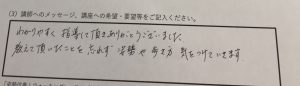 (3) 講師へのメッセージ、講座への希望・要望等をご記入ください。
わかりやすく 指導して頂きありがとうございました
教えて頂いたことを 忘れず 姿勢や歩き方 気をつけていきます